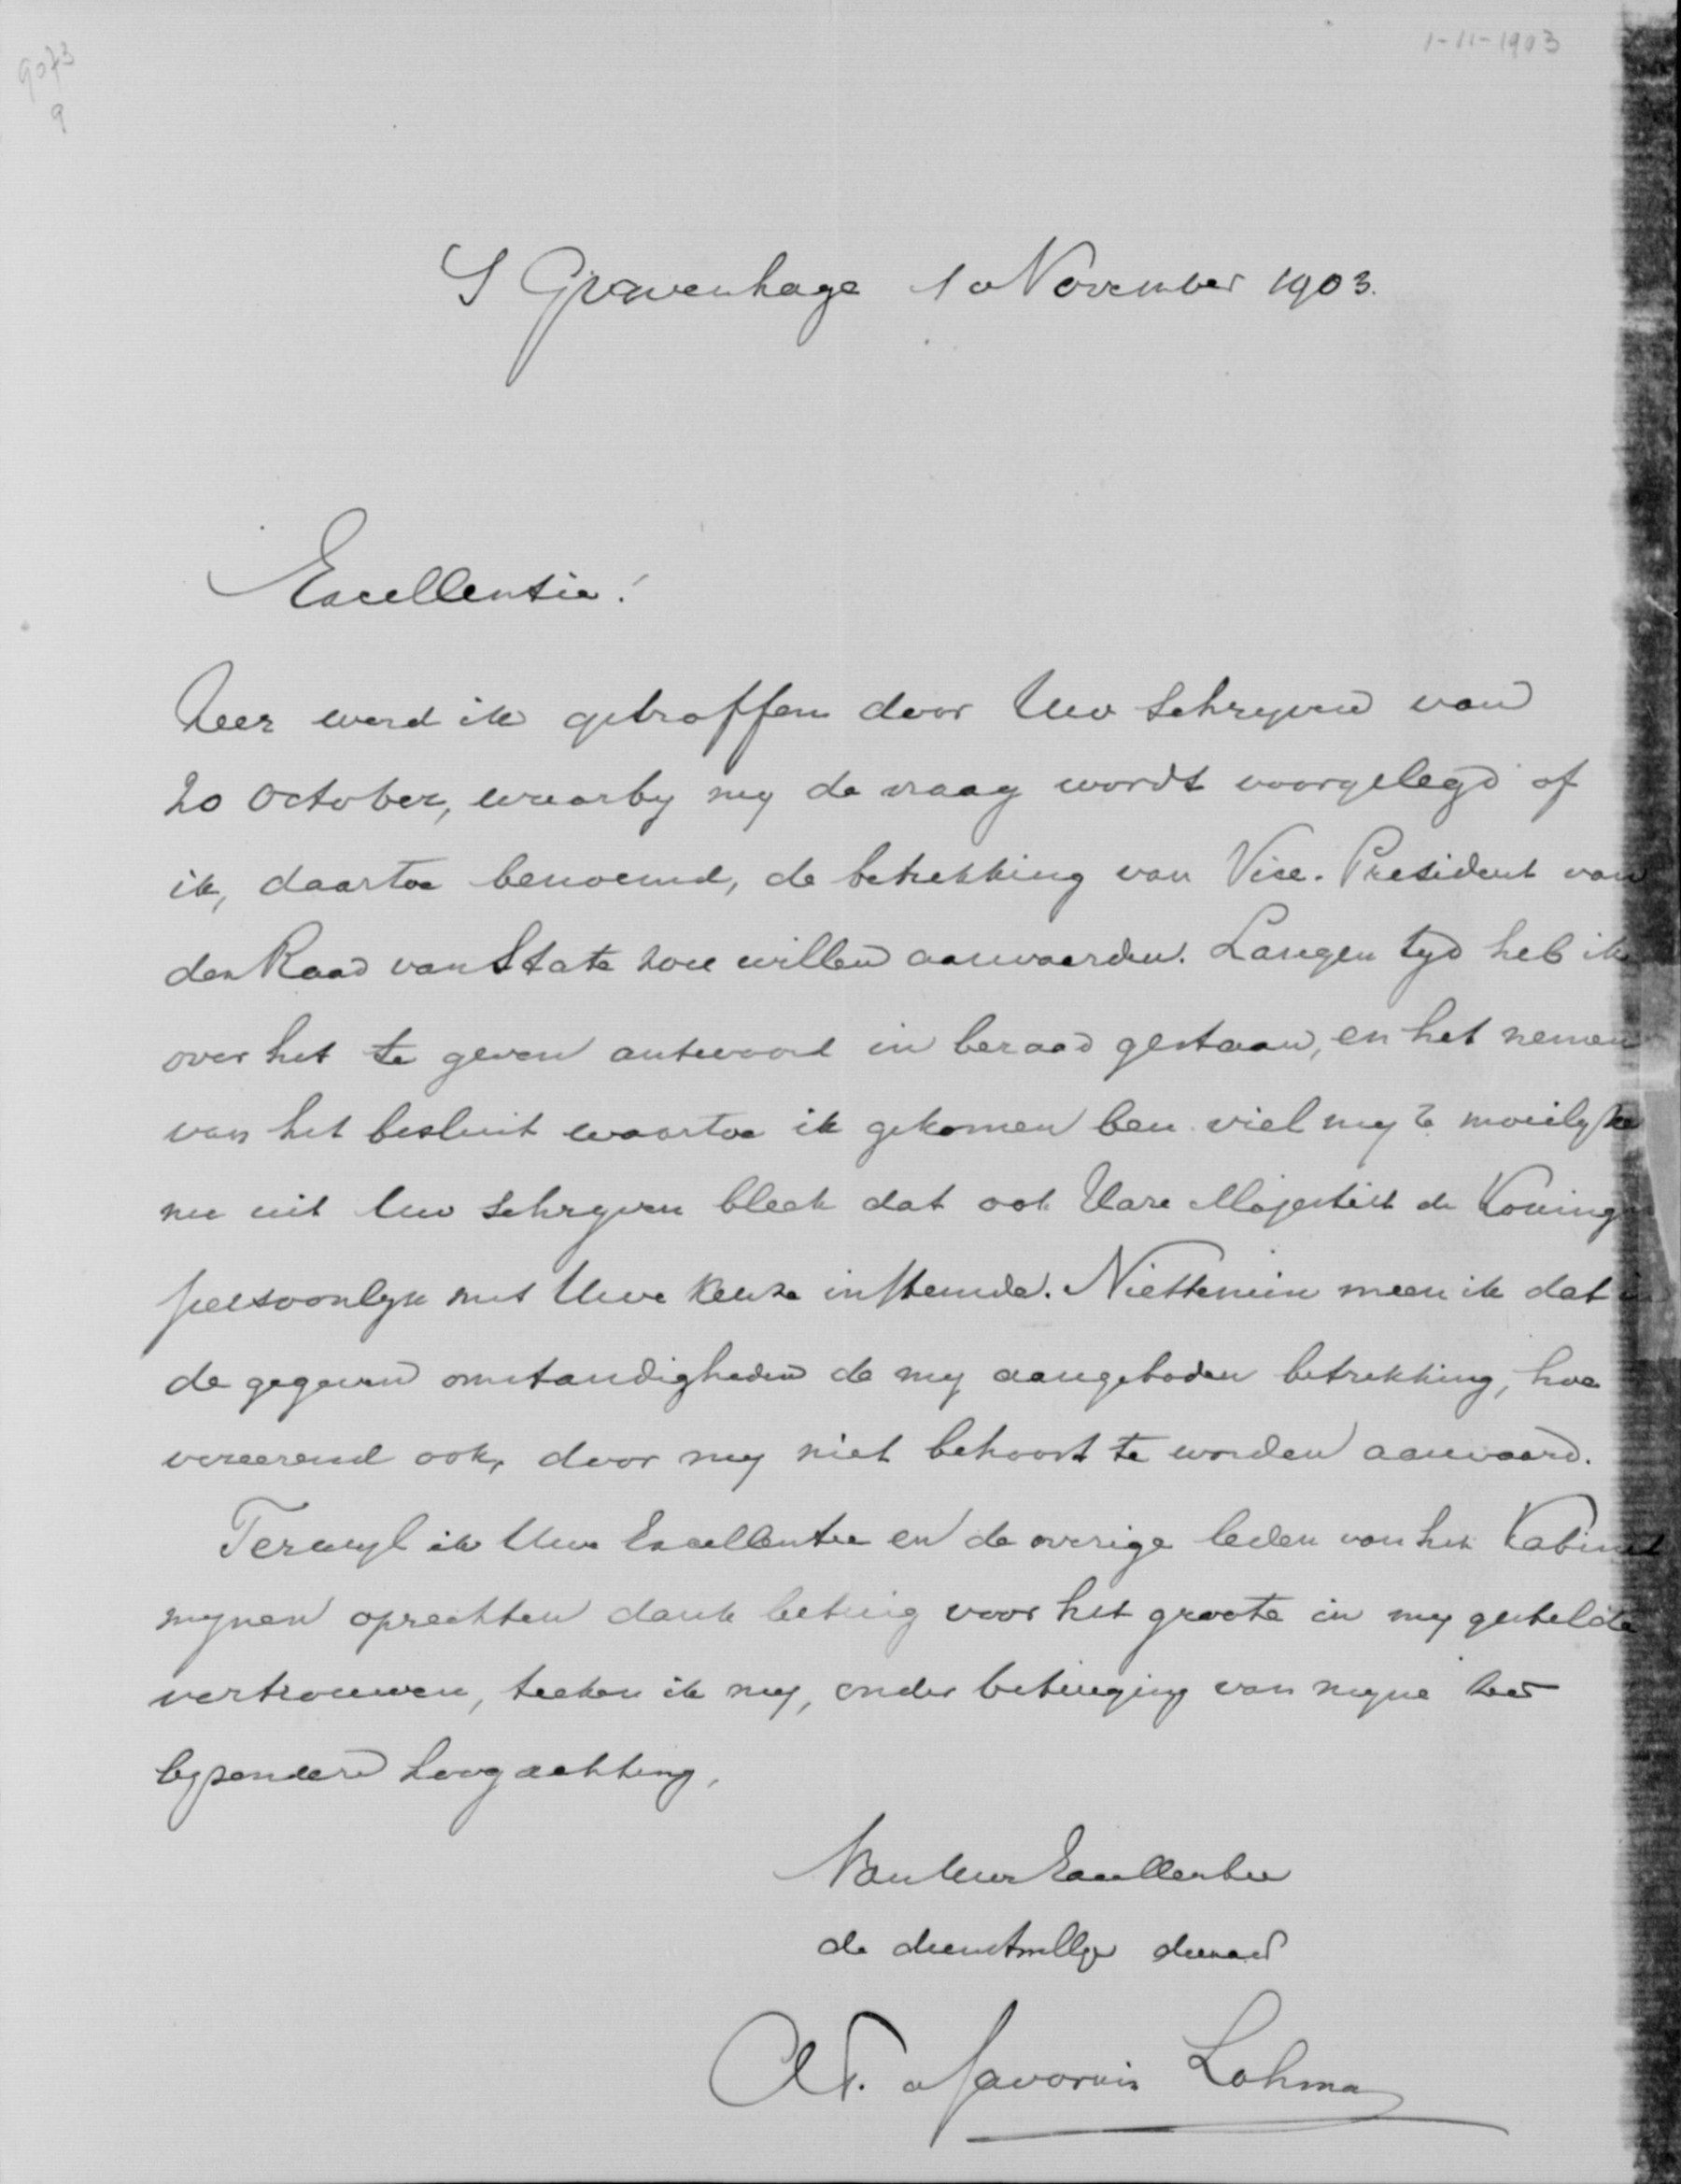 9073
9
1-11-1903
S Gravenhage 1 November 1903.
Excellentie!
Zeer werd ik getroffen door Uw schryven van
20 October, waarby my de vraag wordt voorgelegd of
ik, daartoe benoemd, de betrekking van Vice-President van
den Raad van State zou willen aanvaarden. Langen tyd heb ik
over het te geven antwoord in beraad gestaan, en het nemen
van het besluit waartoe ik gekomen ben viel my te moeilyker
nu uit Uw schryven bleek dat ook Hare Majesteit de Koningin
persoonlyk met Uwe keuze instemde. Niettemin meen ik dat in
de gegeven omstandigheden de my aangeboden betrekking, hoe
vereerend ook, door my niet behoort te worden aanvaard.
Terwyl ik Uwe Excellentie en de overige leden van het Kabinet
mynen oprechten dank betuig voor het groote in my gestelde
vertrouwen, teeken ik my, onder betuiging van myne zeer
byzondere hoogachting,
Van Uwe Excellentie
de dienstwillge dienaar
AF. de Savornin Lohman